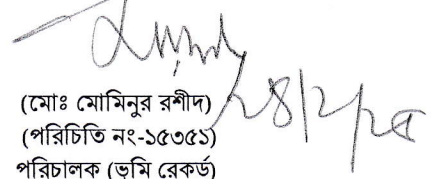 (মোঃ মোমিনুর রশীদ)
(পরিচিতি নং-১৫৩৫১)
পরিচালক (ভূমি রেকর্ড)